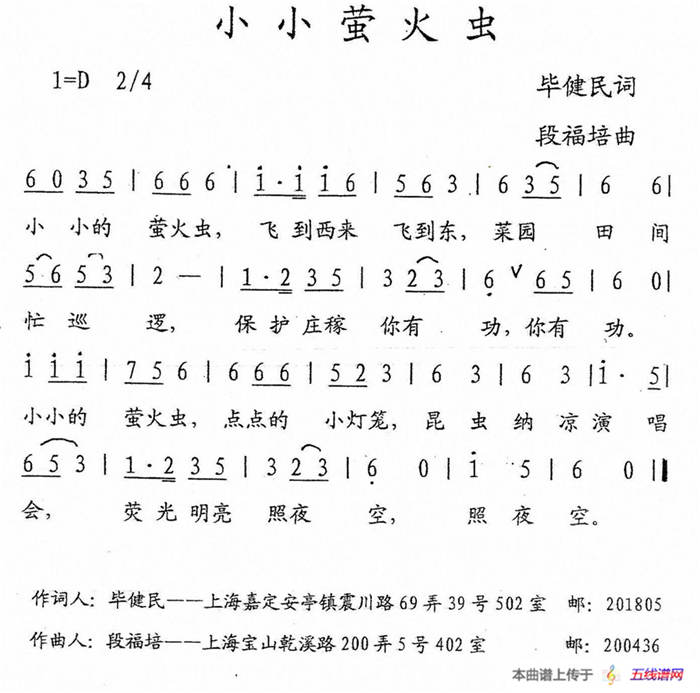 小小萤火虫
1=D 2/4 毕健民词
段福培曲
6 0 3 5 | 6 6 6 | i·i i 6 | 5 6 3 | 6 3 5 | 6 6 |
小 小的 萤火虫， 飞 到西来 飞到东， 菜园 田 间
5 6 5 3 | 2 — | 1·2 3 5 | 3 2 3 | 6 ∨ 6 5 | 6 0 |
忙 巡 逻， 保 护 庄稼 你有 功，你有 功。
i i i | 7 5 6 | 6 6 6 | 5 2 3 | 6 3 | 6 3 | i· 5 |
小小的 萤火虫， 点点的 小灯笼， 昆 虫 纳 凉 演 唱
6 5 3 | 1·2 3 5 | 3 2 3 | 6 0 | i 5 | 6 0 ‖
会， 荧 光 明亮 照夜 空， 照 夜 空。
作词人：毕健民——上海嘉定安亭镇震川路69弄39号502室 邮：201805
作曲人：段福培——上海宝山乾溪路200弄5号402室 邮：200436
本曲谱上传于 五线谱网